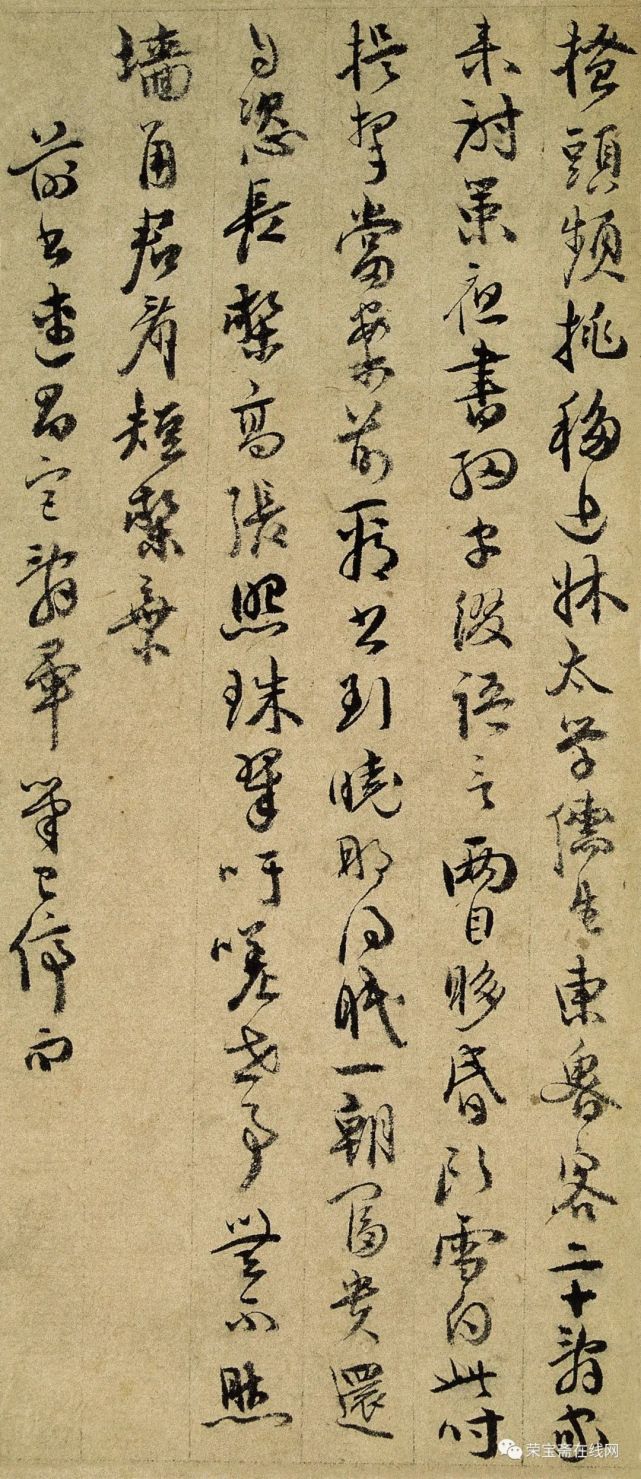 搔頭頻挑移近牀太学儒生東魯客二十辭家
来射策夜書細字綴語言兩目眵昏頭雪白此时
提挈當案前看书到曉那得眠一朝富貴還
自恣長檠高張照珠翠吁嗟世事無不然
墻角君看短檠棄
前书連昌宫辭畢筆已停而
荣宝斋在线网